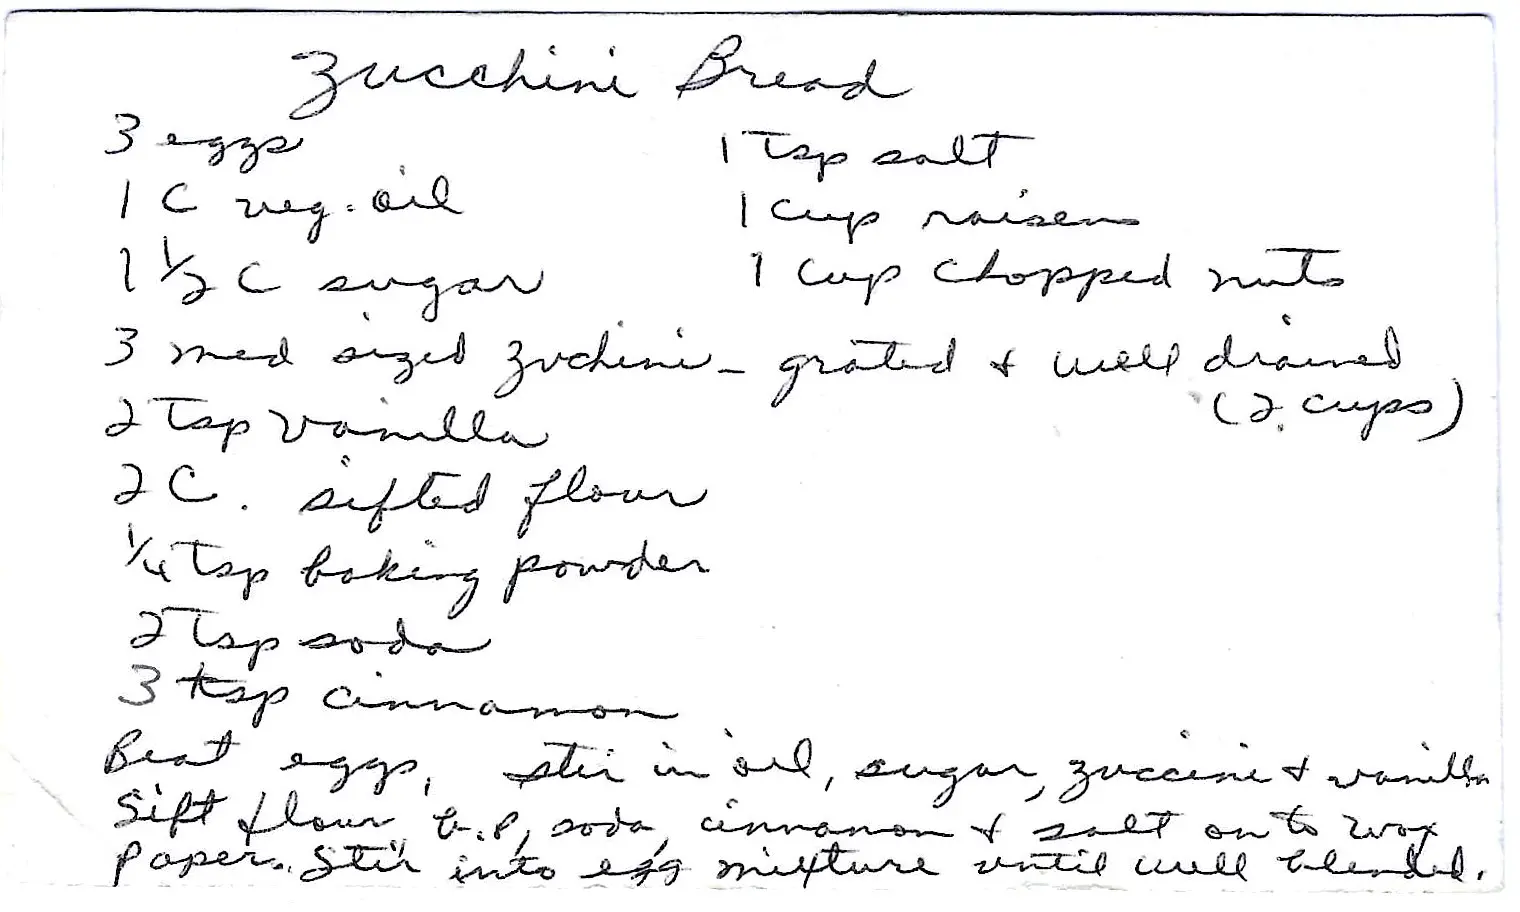 Zucchini Bread
3 eggs
1 C veg. oil
1 1/2 C sugar
3 med sized zuchini - grated & well drained
(2 cups)
2 Tsp vanilla
2 C. sifted flour
1/4 Tsp baking powder
2 Tsp soda
3 tsp cinnamon
1 Tsp salt
1 cup raisens
1 cup chopped nuts
Beat eggs, stir in oil, sugar, zuccini & vanilla
Sift flour, b.p, soda, cinnamon & salt on to wax
paper. Stir into egg mixture until well blended.